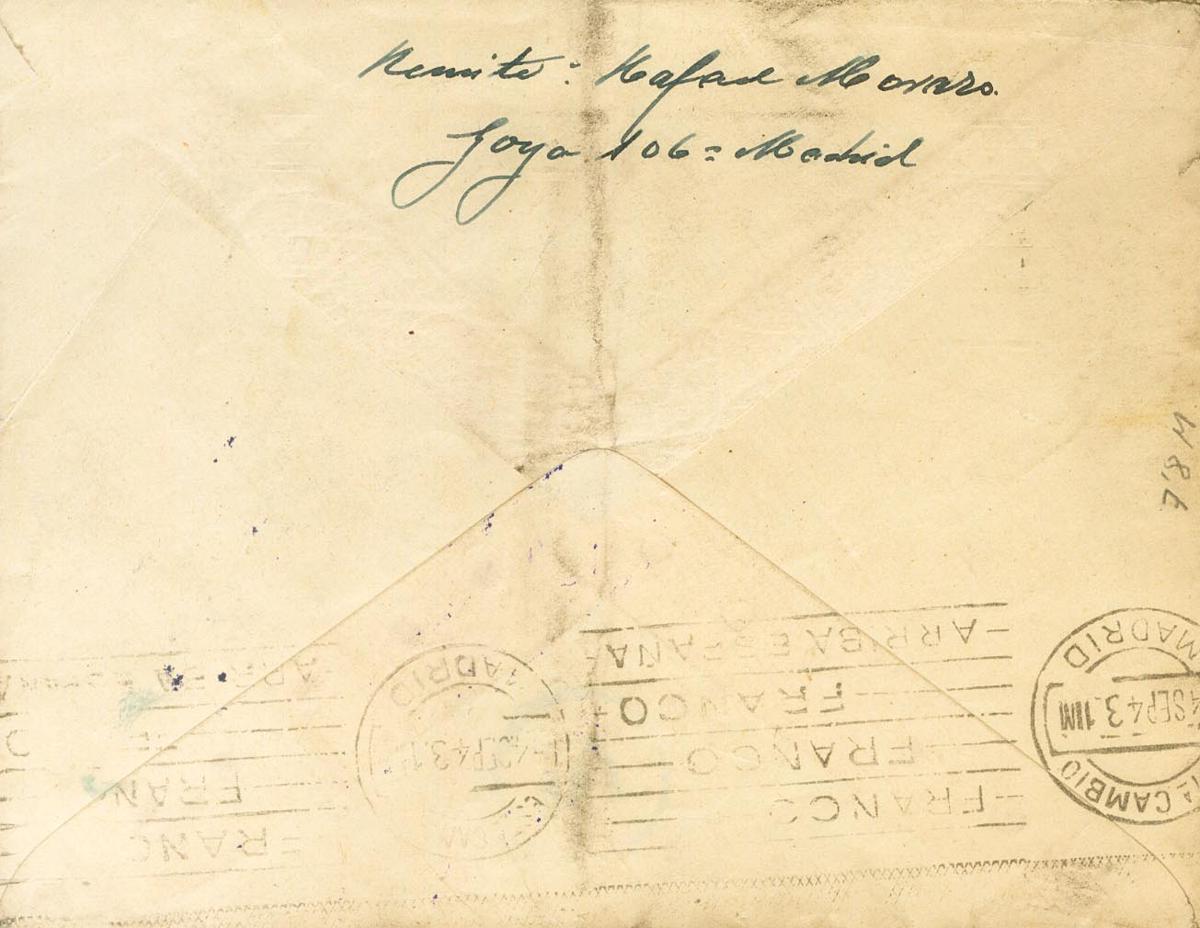 Remite: Rafael Morazo.
Goya 106 = Madrid
7'8 M
ARRIBA ESPAÑA
FRANCO
FRANCO
FRANCO
MADRID
4 SEP 43. 11M
CAMBIO
MADRID
SEP 43. 1
FRAN
FRANC